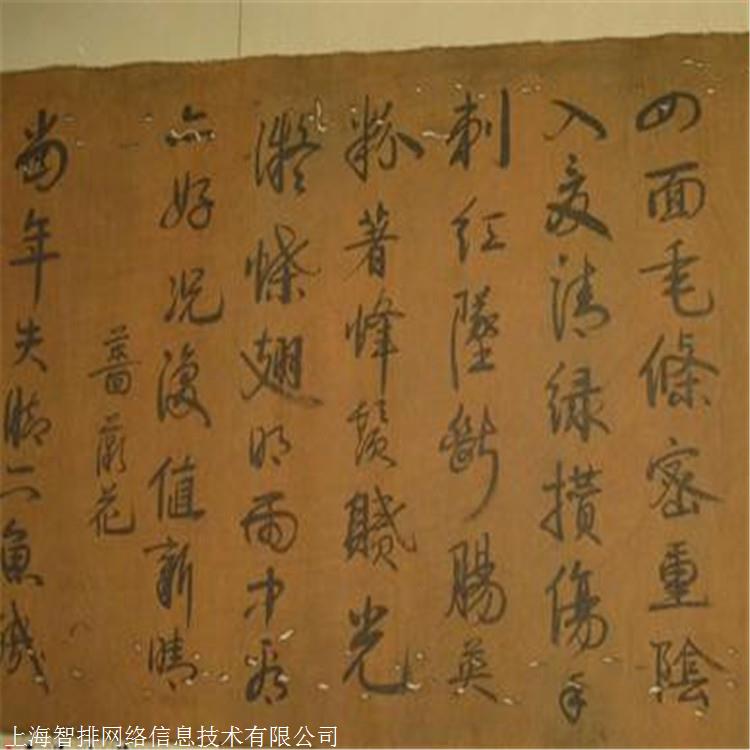 四面毛條密重陰
入夏清綠攢傷手
刺紅墜斷腸英
粉著蜂鬚膩光
凝蝶翅明雨中看
亦好況復值新晴
薔薇花
當年失腳六魚
上海智排网络信息技术有限公司